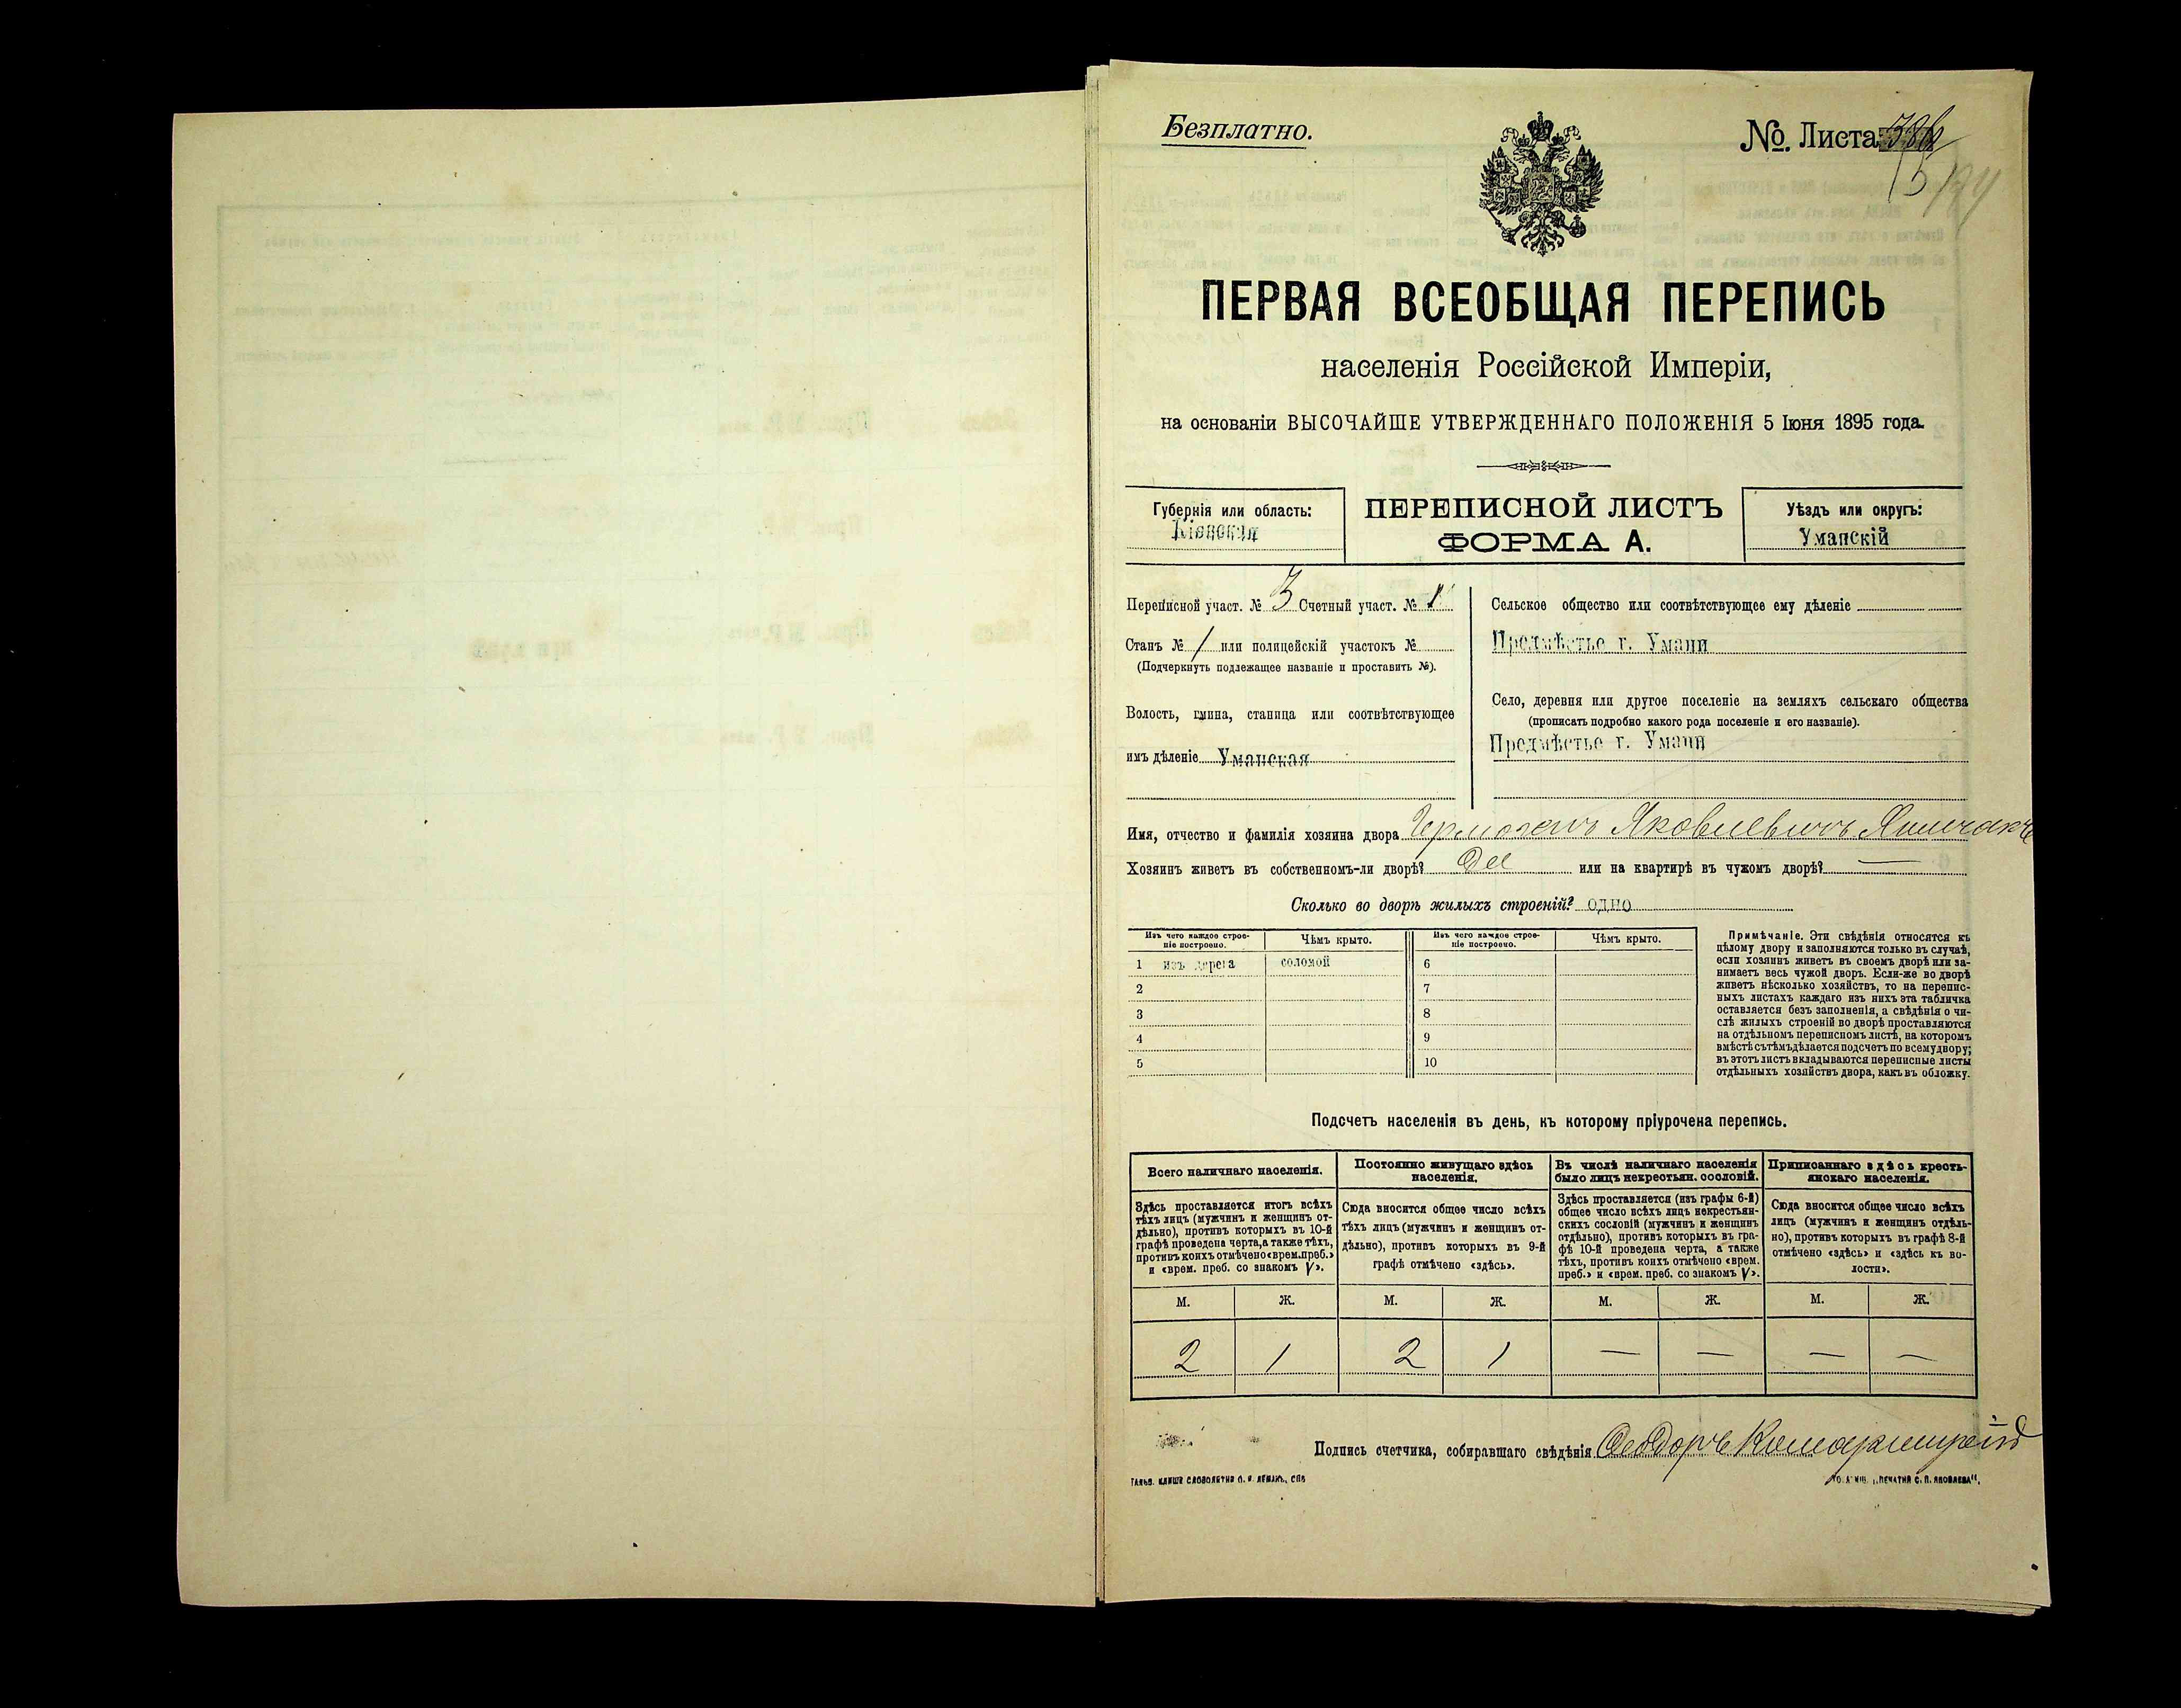 Безплатно.
№ Листа
ПЕРВАЯ ВСЕОБЩАЯ ПЕРЕПИСЬ
населенія Россійской Имперіи,
на основаніи ВЫСОЧАЙШЕ УТВЕРЖДЕННАГО ПОЛОЖЕНІЯ 5 Іюня 1895 года.
Губернія или область:
Кіевская
ПЕРЕПИСНОЙ ЛИСТЪ
ФОРМА А.
Уѣздъ или округъ:
Уманскій
Переписной участ. № 3 Счетный участ. № 1
Станъ № 1 или полицейскій участокъ №
(Подчеркнуть подлежащее названіе и проставить №).
Волость, гмина, станица или соотвѣтствующее
имъ дѣленіе Уманская
Сельское общество или соотвѣтствующее ему дѣленіе
Предмѣстье г. Умани
Село, деревня или другое поселеніе на земляхъ сельскаго общества
(прописать подробно какого рода поселеніе и его названіе).
Предмѣстье г. Умани
Имя, отчество и фамилія хозяина двора Яковлевичъ
Хозяинъ живетъ въ собственномъ-ли дворѣ? Да или на квартирѣ въ чужомъ дворѣ? —
Сколько во дворѣ жилыхъ строеній? одно
Изъ чего каждое строе-
ніе построено.
Чѣмъ крыто.
Изъ чего каждое строе-
ніе построено.
Чѣмъ крыто.
1 изъ дерева соломой 6
2 7
3 8
4 9
5 10
Примѣчаніе. Эти свѣдѣнія относятся къ
цѣлому двору и заполняются только въ случаѣ,
если хозяинъ живетъ въ своемъ дворѣ или за-
нимаетъ весь чужой дворъ. Если-же во дворѣ
живетъ нѣсколько хозяйствъ, то на перепис-
ныхъ листахъ каждаго изъ нихъ эта табличка
оставляется безъ заполненія, а свѣдѣнія о чи-
слѣ жилыхъ строеній во дворѣ проставляются
на отдѣльномъ переписномъ листѣ, на которомъ
вмѣстѣ съ тѣмъ дѣлается подсчетъ по всему двору;
въ этотъ листъ вкладываются переписные листы
отдѣльныхъ хозяйствъ двора, какъ въ обложку.
Подсчетъ населенія въ день, къ которому пріурочена перепись.
Всего наличнаго населенія.
Здѣсь проставляется итогъ всѣхъ
тѣхъ лицъ (мужчинъ и женщинъ от-
дѣльно), противъ которыхъ въ 10-й
графѣ проведена черта, а также тѣхъ,
противъ коихъ отмѣчено «врем. преб.»
и «врем. преб. со знакомъ V».
Постоянно живущаго здѣсь
населенія.
Сюда вносится общее число всѣхъ
тѣхъ лицъ (мужчинъ и женщинъ от-
дѣльно), противъ которыхъ въ 9-й
графѣ отмѣчено «здѣсь».
Въ числѣ наличнаго населенія
было лицъ некрестьян. сословій.
Здѣсь проставляется (изъ графы 6-й)
общее число всѣхъ лицъ некрестьян-
скихъ сословій (мужчинъ и женщинъ
отдѣльно), противъ которыхъ въ гра-
фѣ 10-й проведена черта, а также
тѣхъ, противъ коихъ отмѣчено «врем.
преб.» и «врем. преб. со знакомъ V».
Приписаннаго здѣсь кресть-
янскаго населенія.
Сюда вносится общее число всѣхъ
лицъ (мужчинъ и женщинъ отдѣль-
но), противъ которыхъ въ графѣ 8-й
отмѣчено «здѣсь» и «здѣсь къ во-
лости».
М. Ж. М. Ж. М. Ж. М. Ж.
2 1 2 1 — — — —
Подпись счетчика, собиравшаго свѣдѣнія Ѳеодоръ